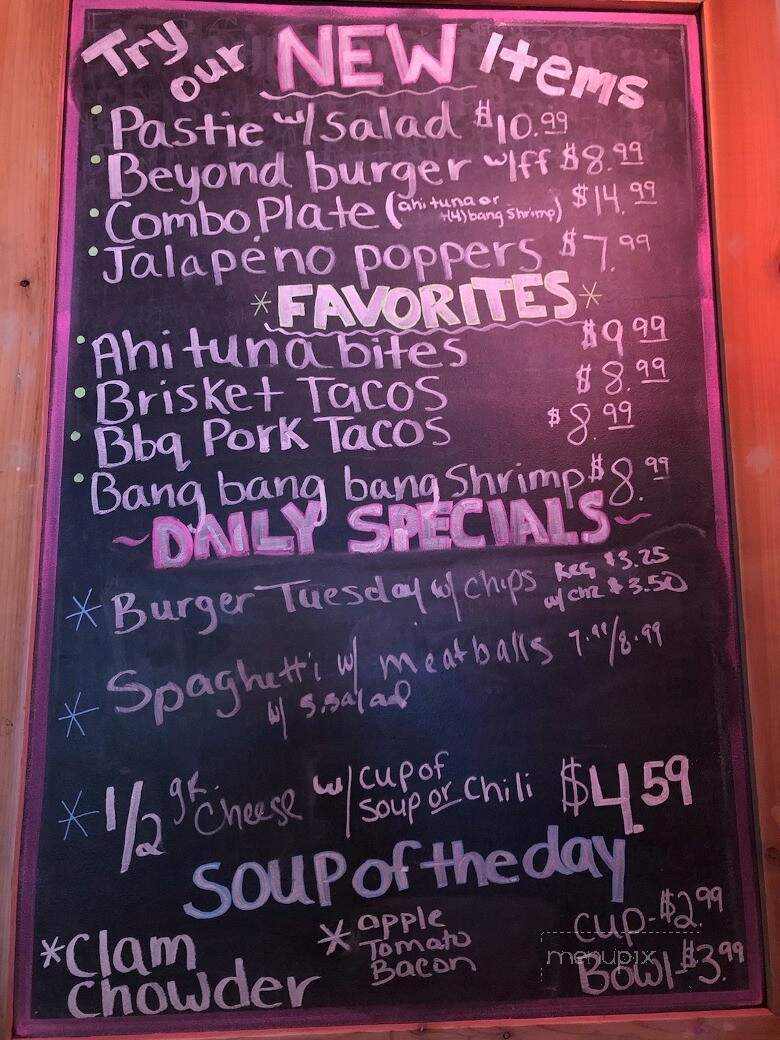 Try our NEW Items
Pastie w/ Salad $10.99
Beyond burger w/ff $8.99
Combo Plate (ahi tuna or (4) bang Shrimp) $14.99
Jalapeno poppers $7.99
*FAVORITES*
Ahi tuna bites $9.99
Brisket Tacos $8.99
Bbq Pork Tacos $8.99
Bang bang bang Shrimp $8.99
~DAILY SPECIALS~
* Burger Tuesday w/ chips Reg $3.25
w/ chz $3.50
* Spaghetti w/ meatballs 7.99/8.99
w/ s.salad
* 1/2 gr. Cheese w/ cup of
soup or Chili $4.59
Soup of the day
*Clam
Chowder
* apple
Tomato
Bacon
Cup - $2.99
Bowl - $3.99
menupix